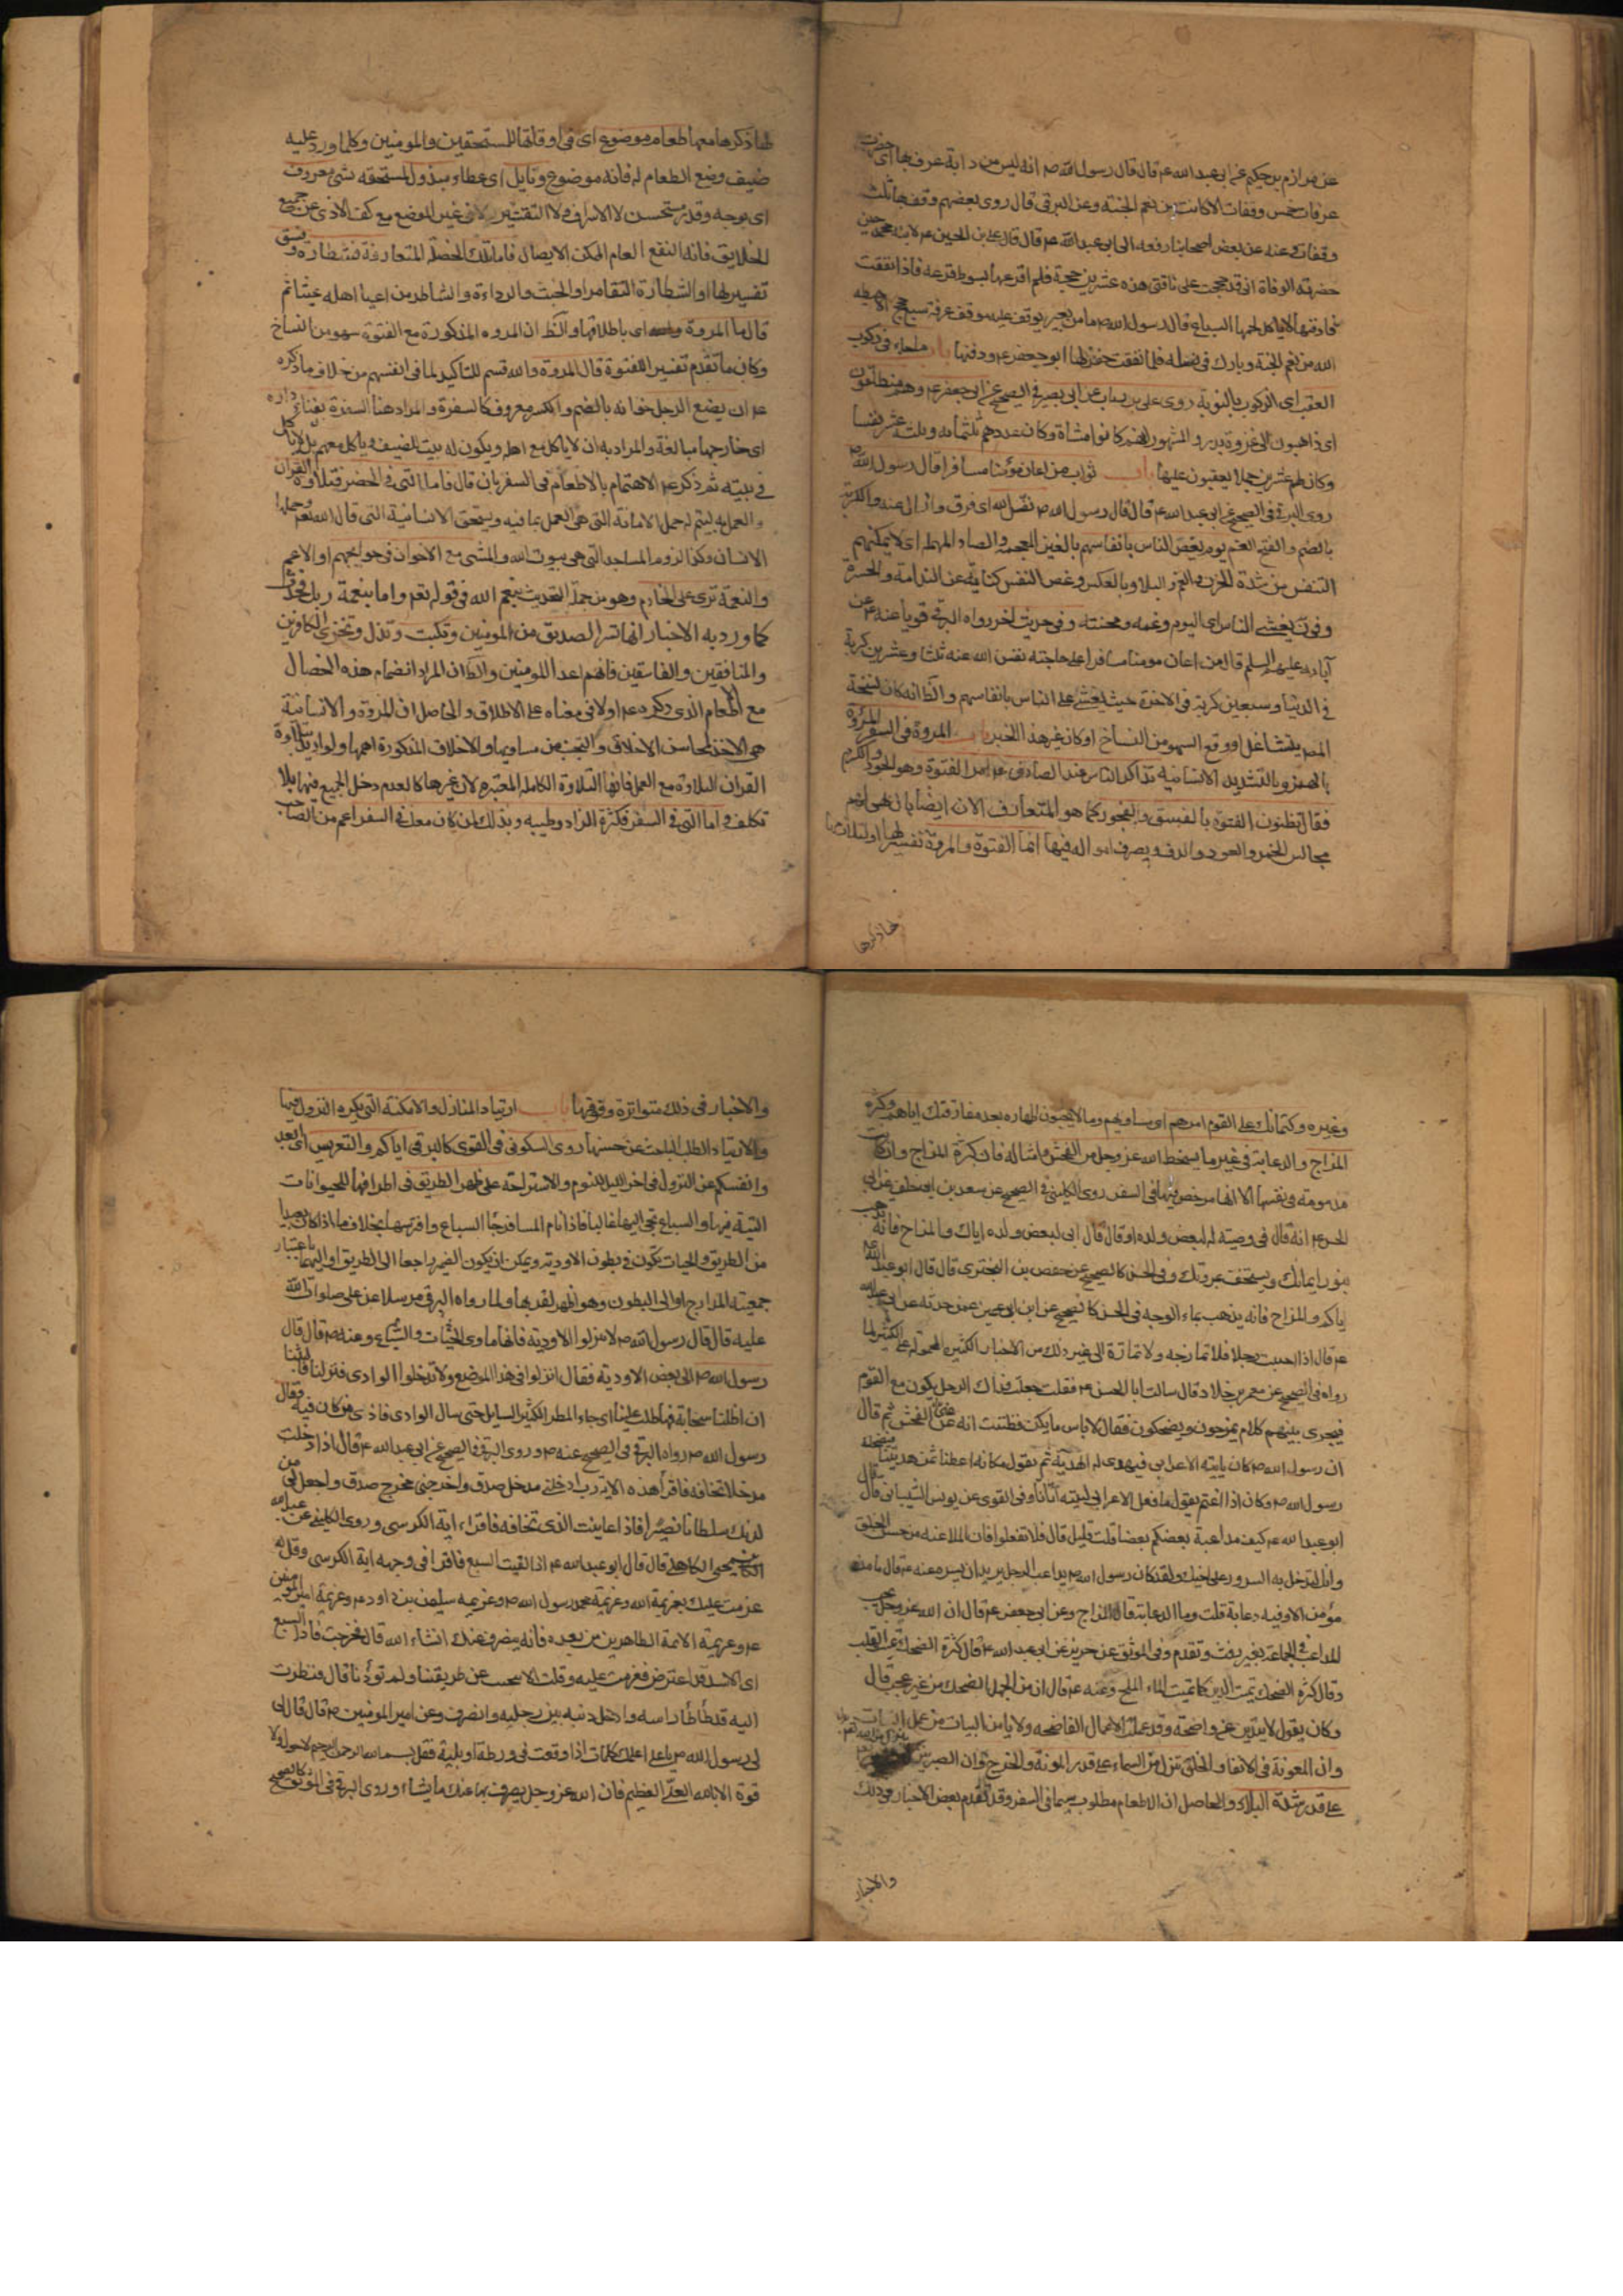 عن مرازم بن حكيم عن ابى عبد الله ع قال قال رسول الله ص انه ليس من دابة عرف بها اى
عرفات خمس وقفات الا كانت من نعم الجنة وعن البرقى قال روى بعضهم وقف بها ثلث
وقفات وعنه عن بعض اصحابنا رفعه الى ابى عبد الله ع قال قال على بن الحسين ع لابنه محمد حين
حضرته الوفاة انى قد حججت على ناقتى هذه عشرين حجة فلم اقرعها بسوط قرعة فاذا نفقت
فادفنها لا ياكل لحمها السباع قال رسول الله ص ما من بعير يوقف عليه موقف عرفة سبع حجج الا جعله
الله من نعم الجنة وبارك فى نسله فلما نفقت حفر لها ابو جعفر ع ودفنها باب ما جاء فى ركوب
العقب اى الركوب بالنوبة روى على بن رباب عن ابى بصير فى الصحيح عن ابى جعفر ع وهم منطلقون
اى ذاهبون الى غزوة بدر والمشهور انهم كانوا مشاة وكان عددهم ثلثمائه وثلثه عشر نفسا
وكان لهم عشرين جملا يعقبون عليها باب ثواب من اعان مؤمنا مسافرا قال رسول الله ص
روى البرقى فى الصحيح عن ابى عبد الله ع قال قال رسول الله ص نفس الله اى فرق وازال عنه والكربة
بالضم والفتح الغم يوم يغص الناس بانفاسهم بالغين المعجمة والصاد المهملة اى لا يمكنهم
التنفس من شدة الحزن والغم والبلاء وبالعكس وغص النفس كناية عن الندامة والحسرة
وفى يغشى الناس اى اليوم وغمه ومحنته وفى حديث اخر رواه البرقى قويا عنه ع عن
آبائه عليهم السلم قال من اعان مومنا مسافرا على حاجته نفس الله عنه ثلثا وعشرين كربة
فى الدنيا وسبعين كربة فى الاخرة حيث يغشى على الناس بانفاسهم والظ انه كان نسخة
المص يتشاغل او وقع السهو من النساخ او كان غير هذا الخبر باب المروة فى السفر المروة
بالهمز وبالتشديد الانسانية تذاكر الناس عند الصادق ع امر الفتوة وهو الجود والكرم
فقال تظنون الفتوة بالفسق والفجور كما هو المتعارف الان ايضا بان
مجالس الخمر والعود والدف ويصرف امواله فيها انما الفتوة والمروة تفسير لها
لها ذكرها
لها ذكرها معها طعام موضوع اى فى اوقاتها للمستحقين والمومنين وكلما ورد عليه
ضيف وضع الطعام له فانه موضوع ونايل اى عطاء مبذول لمستحقه شى معروف
اى بوجه وقدر مستحسن لا الاسراف ولا التقتير لا فى غير الموضع مع كف الاذى عن جميع
الخلايق فانه النفع العام الممكن الايصال فاما تلك الخصلة المتعارفة فشطارة وفسق
تفسير لها او الشطارة التقامر او الخبث والرداءة والشاطر من اعيا اهله عيثا ثم
قال ما المروة اى باطلاقها والظ ان المروه المذكورة مع الفتوة سهو من النساخ
وكان ما تقدم تفسير الفتوة قال المروة والله قسم للتاكيد لما فى انفسهم من خلاف ما ذكره
ع ان يضع الرجل خوانه بالضم والكسر معروف كالسفرة والمراد هنا السفرة بفناء داره
اى خارجها مبالغة والمراد به ان لا ياكل مع اهله ويكون له بيت الضيف وياكل معهم بل لا ياكل
فى بيته ثم ذكر ع الاهتمام بالاطعام فى السفر بان قال فاما التى فى الحضر فتلاوة القران
والعمل به ليتم له حمل الامانة التى هى العمل بما فيه ويستحق الانسانية التى قال الله تعم وحملها
الانسان وكذا لزوم المساجد التى هى بيوت الله والمشى مع الاخوان فى حوايجهم او الاعم
والنعمة ترى على الخادم وهو من جملة التحديث بنعم الله فى قوله تعم واما بنعمة ربك فحدث
كما ورد به الاخبار انها تسر الصديق من المومنين وتكبت وتذل وتخزى الكافرين
والمنافقين والفاسقين فانهم اعداء المومنين والظ ان المراد انضمام هذه الخصال
مع الطعام الذى ذكره ع اولا فى معناه على الاطلاق والحاصل ان المروة والانسانية
هى الاخذ بمحاسن الاخلاق والتجنب عن مساويها والاخلاق المذكورة اهمها ولو اريد بتلاوة
القران التلاوة مع العمل فانها التلاوة الكاملة المعتبرة لان غيرها كالعدم دخل الجميع فيها بلا
تكلف واما التى فى السفر فكثرة الزاد وطيبه وبذله لمن كان معك فى السفر اعم من الصاحب
وغيره وكتمانك على القوم امرهم اى مساويهم وما لا يحبون اظهاره بعد مفارقتك اياهم وكثرة
المزاح والدعابة فى غير ما يسخط الله عز وجل من الفحش وامثاله فان كثرة المزاح وان كانت
مذمومة فى نفسها الا انها مرخص فيها فى السفر روى الكلينى فى الصحيح عن سعد بن ابى خلف عن ابى
الحسن ع انه قال فى وصيته له لبعض ولده او قال قال ابى لبعض ولده اياك والمزاح فانه يذهب
بنور ايمانك ويستخف بمروتك وفى الحسن كالصحيح عن حفص بن البخترى قال قال ابو عبد الله ع
اياكم والمزاح فانه يذهب بماء الوجه وفى الحسن كالصحيح عن ابن ابى عمير عمن حدثه عن ابى عبد الله
ع قال اذا احببت رجلا فلا تمازحه ولا تماره الى غير ذلك من الاخبار الكثيرة المحمولة على الكثير لما
رواه فى الصحيح عن معمر بن خلاد قال سالت ابا الحسن ع فقلت جعلت فداك الرجل يكون مع القوم
فيجرى بينهم كلام يمزحون ويضحكون فقال لا باس ما لم يكن فظننت انه عنى الفحش ثم قال
ان رسول الله ص كان ياتيه الاعرابى فيهدى له الهدية ثم يقول مكانه اعطنا ثمن هديتنا فيضحك
رسول الله ص وكان اذا اغتم يقول ما فعل الاعرابى ليته اتانا وفى القوى عن يونس الشيبانى قال قال
ابو عبد الله ع كيف مداعبة بعضكم بعضا قلت قليل قال فلا تفعلوا فان المداعبة من حسن الخلق
وانك لتدخل بها السرور على اخيك ولقد كان رسول الله ص يداعب الرجل يريد ان يسره وعنه ع قال ما من
مؤمن الا وفيه دعابة قلت وما الدعابة قال المزاح وعن ابى جعفر ع قال ان الله عز وجل يحب
المداعب فى الجماعة بغير رفث وتقدم وفى الموثق عن حريز عن ابى عبد الله ع قال كثرة الضحك تميت القلب
وقال كثرة الضحك تميت الدين كما يميت الماء الملح وعنه ع قال ان من الجهل الضحك من غير عجب قال
وكان يقول لا تبدين عن واضحة وقد عملت الاعمال الفاضحه ولا يامن البيات من عمل السيئات
وان المعونة فى الانفاق والخلق تنزل من السماء على قدر المونة والخرج وان الصبر
على قدر شدة البلاء والحاصل ان الاطعام مطلوب سيما فى السفر وقد تقدم بعض الاخبار فى ذلك
والاخبار
والاخبار فى ذلك متواترة وفوقها باب ارتياد المنازل والامكنة التى يكره النزول فيها
والارتياد الطلب الباحث عن حسنها روى السكونى فى القوى كالبرقى اياكم والتعريس اى ابعد
وانفسكم عن النزول فى اخر الليل للنوم والاستراحة على ظهر الطريق فى اطرافها للحيوانات
فيها والسباع تجى اليها غالبا فاذا نام المسافر جاء السباع وافترسها بخلاف ما اذا كان بعيدا
من الطريق والحيات تكون فى بطون الاودية ويمكن ان يكون الضمير راجعا الى الطريق او اليهما باعتبار
جمعيته المدارج او الى البطون وهو اظهر لقربها ولما رواه البرقى مرسلا عن على صلوات الله
عليه قال قال رسول الله ص لا تنزلوا الاودية فانها ماوى الحيات والسباع وعنه ص قال قال
رسول الله ص الى بعض الاودية فقال انزلوا فى هذا الموضع ولا تدخلوا الوادى فنزلنا فما لبثنا
ان اظلتنا سحابة فهطلت علينا اى جاء المطر الكثير السايل حتى سال الوادى فاذى من كان فيه فقال
رسول الله ص رواه البرقى فى الصحيح عنه ص وروى البرقى فى الصحيح عن ابى عبد الله ع قال اذا دخلت
مدخلا تخافه فاقرأ هذه الاية رب ادخلنى مدخل صدق واخرجنى مخرج صدق واجعل لى من
لدنك سلطانا نصيرا فاذا عاينت الذى تخافه فاقراء اية الكرسى وروى الكلينى عن عبد الله
بن يحيى الكاهلى قال قال ابو عبد الله ع اذا لقيت السبع فاقرا فى وجهه اية الكرسى وقل له
عزمت عليك بعزيمة الله وعزيمة محمد رسول الله ص وعزيمه سليمن بن داود ع وعزيمة امير المؤمنين
ع وعزيمة الائمة الطاهرين من بعده فانه ينصرف عنك انشاء الله قال فخرجت فاذا السبع
اى الاسد قد اعترض فعزمت عليه وقلت الا تنحيت عن طريقنا ولم تؤذنا قال فنظرت
اليه قد طأطأ راسه وادخل ذنبه بين رجليه وانصرف وعن امير المومنين ص قال قال
لى رسول الله ص يا على اعلمك كلمات اذا وقعت فى ورطة او بلية فقل بسم الله الرحمن الرحيم لا حول ولا
قوة الا بالله العلى العظيم فان الله عز وجل يصرف بها عنك ما يشاء وروى البرقى فى الموثق كالصحيح